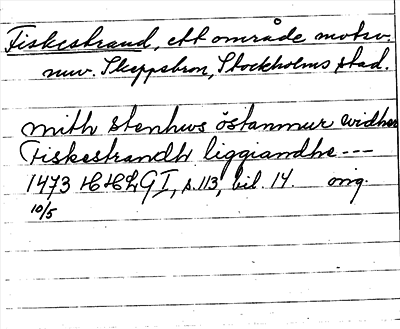 Fiskestrand, ett område motsv.
nuv. Skeppsbron, Stockholms stad.
mith stenhws östanmur widher
Fiskestrandh liggiandhe ---
1473 HHLG I, s. 113, bil. 14. orig.
10/5